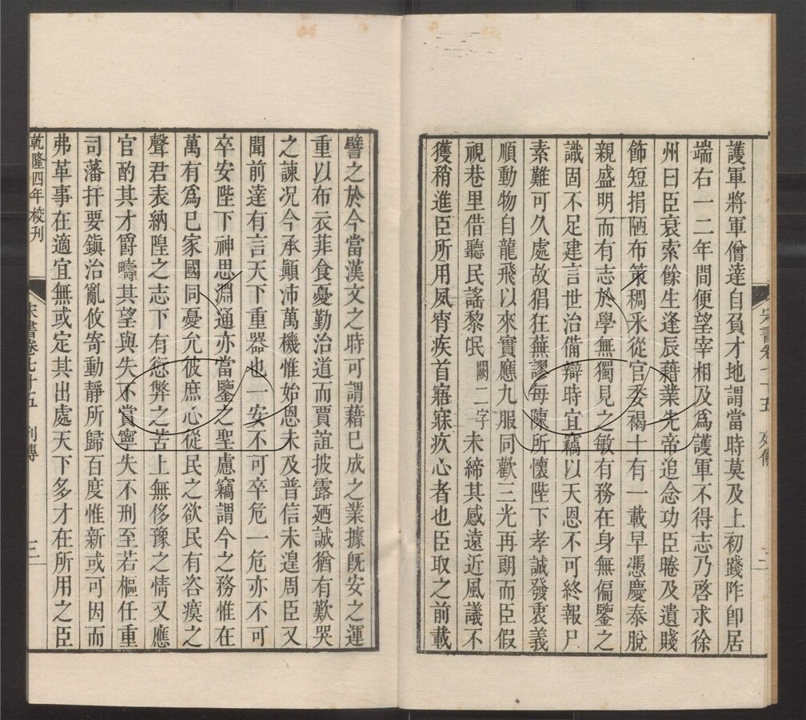 護軍將軍僧達自負才地謂當時莫及上初踐阼卽居
端右一二年間便望宰相及爲護軍不得志乃啓求徐
州曰臣衰索餘生逢辰藉業先帝追念功臣睠及遺賤
飾短捐陋布策稠采從官委褐十有一載早憑慶泰脫
親盛明而有志於學無獨見之敏有務在身無偏鑒之
識固不足建言世治備辯時宜竊以天恩不可終報尸
素難可久處故猖狂蕪謬每陳所懷陛下孝誠發衷義
順動物自龍飛以來實應九服同歡三光再朗而臣假
視巷里借聽民謠黎氓 闕二字 未締其感遠近風議不
獲稍進臣所用夙宵疾首寤寐疚心者也臣取之前載
宋書卷七十五 列傳 二
譬之於今當漢文之時可謂藉已成之業據旣安之運
重以布衣菲食憂勤治道而賈誼披露廼誠猶有歎哭
之諫况今承顚沛萬機惟始恩未及普信未遑周臣又
聞前達有言天下重器也一安不可卒危一危亦不可
卒安陛下神思淵通亦當鑒之聖慮竊謂今之務惟在
萬有爲已家國同憂允彼庶心從民之欲民有咨瘼之
聲君表納隍之志下有愆弊之苦上無侈豫之情又應
官酌其才爵疇其望與失不賞寧失不刑至若樞任重
司藩扞要鎭治亂攸寄動靜所歸百度惟新或可因而
弗革事在適宜無或定其出處天下多才在所用之臣
乾隆四年校刊
宋書卷七十五 列傳 三